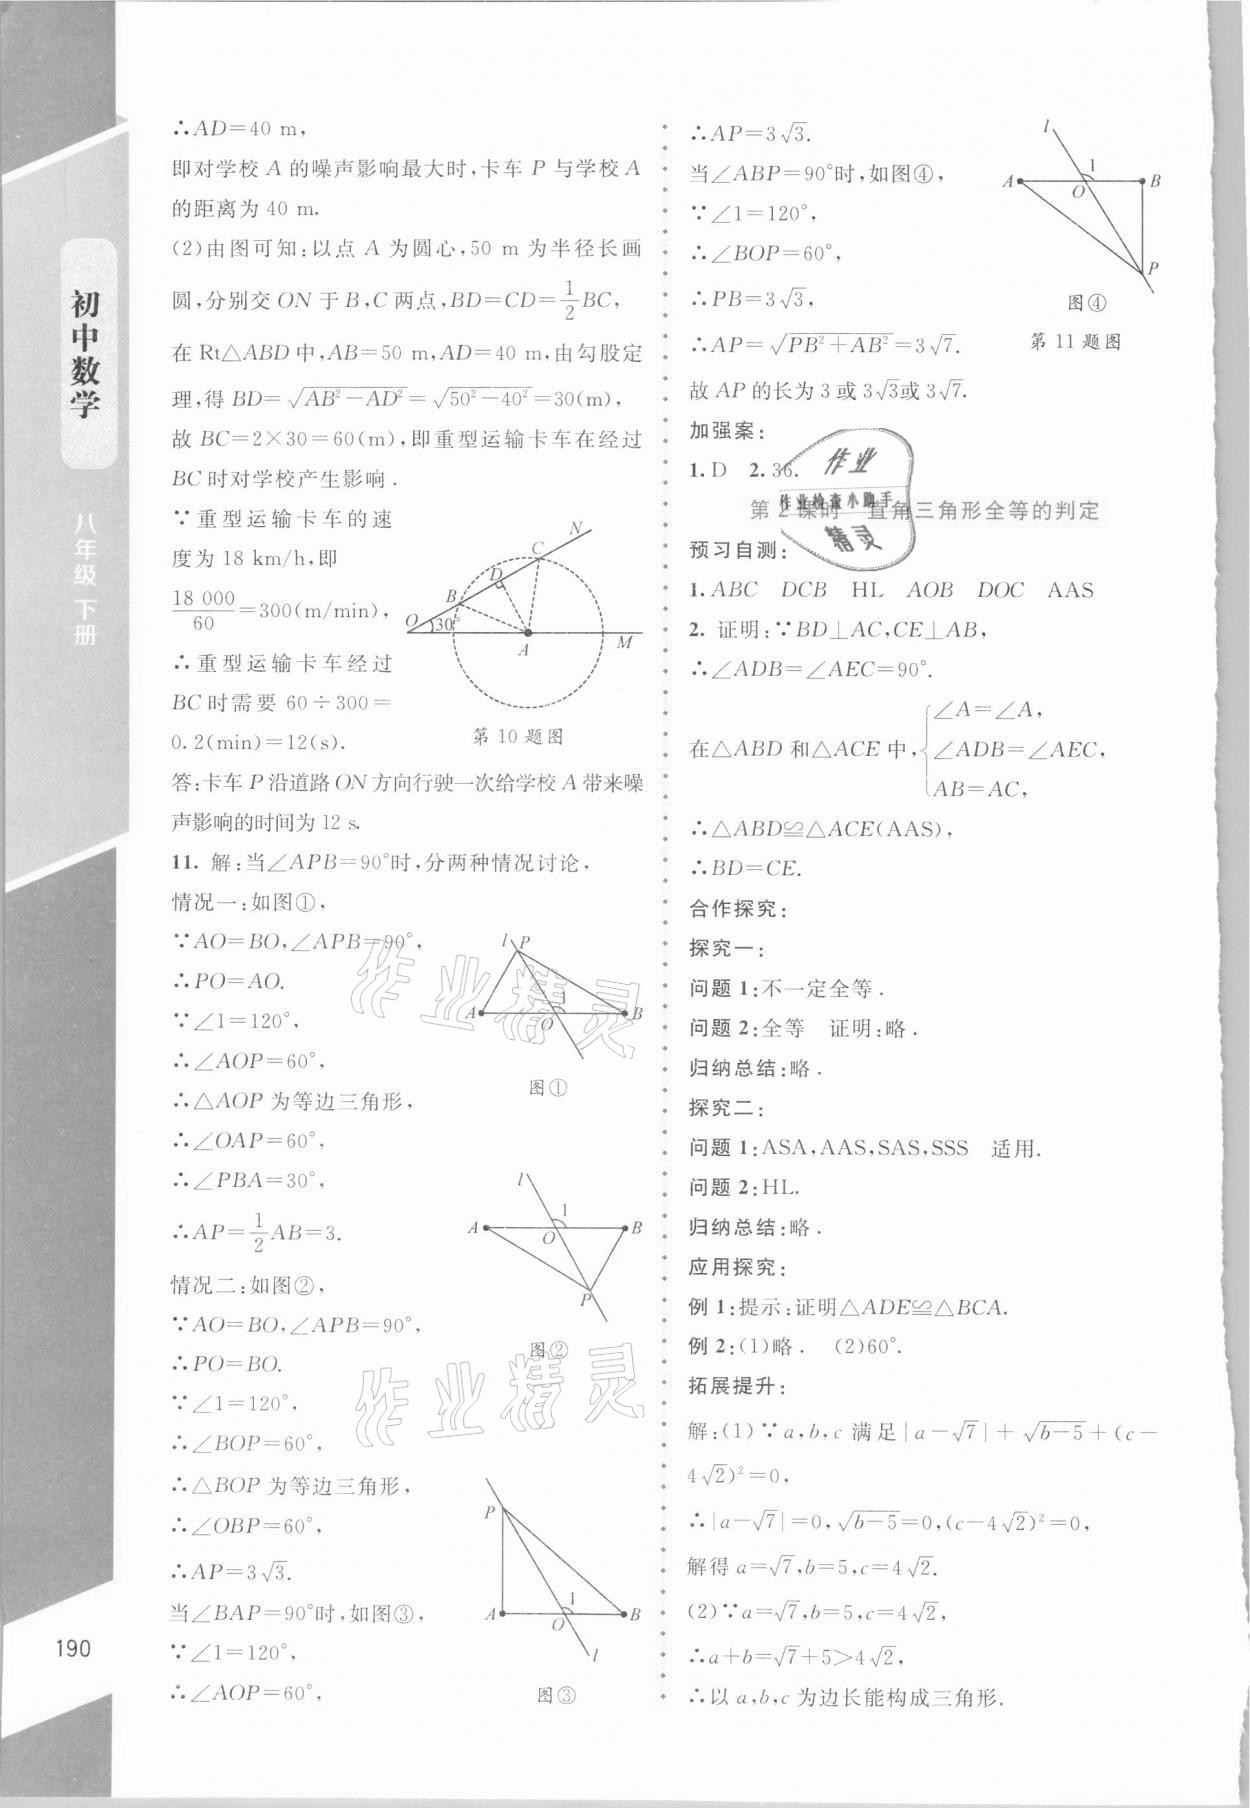 初中数学
八年级 下册
190
∴AD=40 m,
即对学校 A 的噪声影响最大时,卡车 P 与学校 A
的距离为 40 m.
(2)由图可知:以点 A 为圆心,50 m 为半径长画
圆,分别交 ON 于 B,C 两点,BD=CD=1/2BC,
在 Rt△ABD 中,AB=50 m,AD=40 m,由勾股定
理,得 BD=√(AB²-AD²)=√(50²-40²)=30(m),
故 BC=2×30=60(m),即重型运输卡车在经过
BC 时对学校产生影响.
∵重型运输卡车的速
度为 18 km/h,即
18 000/60=300(m/min),
∴重型运输卡车经过
BC 时需要 60÷300=
0.2(min)=12(s).
O 30° B D C N A M
第 10 题图
答:卡车 P 沿道路 ON 方向行驶一次给学校 A 带来噪
声影响的时间为 12 s.
11. 解:当∠APB=90°时,分两种情况讨论,
情况一:如图①,
∵AO=BO,∠APB=90°,
∴PO=AO.
∵∠1=120°,
∴∠AOP=60°,
∴△AOP 为等边三角形,
∴∠OAP=60°,
∴∠PBA=30°,
∴AP=1/2AB=3.
l P A O 1 B
图①
情况二:如图②,
∵AO=BO,∠APB=90°,
∴PO=BO.
∵∠1=120°,
∴∠BOP=60°,
∴△BOP 为等边三角形,
∴∠OBP=60°,
∴AP=3√3.
l 1 A O B P
图②
当∠BAP=90°时,如图③,
∵∠1=120°,
∴∠AOP=60°,
P A O 1 B l
图③
∴AP=3√3.
当∠ABP=90°时,如图④,
∵∠1=120°,
∴∠BOP=60°,
∴PB=3√3,
∴AP=√(PB²+AB²)=3√7.
故 AP 的长为 3 或 3√3或 3√7.
l 1 A O B P
图④
第 11 题图
加强案:
1. D 2. 36.
第 2 课时 直角三角形全等的判定
预习自测:
1. ABC DCB HL AOB DOC AAS
2. 证明:∵BD⊥AC,CE⊥AB,
∴∠ADB=∠AEC=90°.
在△ABD 和△ACE 中,{∠A=∠A,
∠ADB=∠AEC,
AB=AC,
∴△ABD≌△ACE(AAS),
∴BD=CE.
合作探究:
探究一:
问题 1:不一定全等.
问题 2:全等 证明:略.
归纳总结:略.
探究二:
问题 1:ASA,AAS,SAS,SSS 适用.
问题 2:HL.
归纳总结:略.
应用探究:
例 1:提示:证明△ADE≌△BCA.
例 2:(1)略. (2)60°.
拓展提升:
解:(1)∵a,b,c 满足|a-√7|+√(b-5)+(c-
4√2)²=0,
∴|a-√7|=0,√(b-5)=0,(c-4√2)²=0,
解得 a=√7,b=5,c=4√2.
(2)∵a=√7,b=5,c=4√2,
∴a+b=√7+5>4√2,
∴以 a,b,c 为边长能构成三角形.
作业
作业检查小助手
精灵
作业精灵
作业精灵